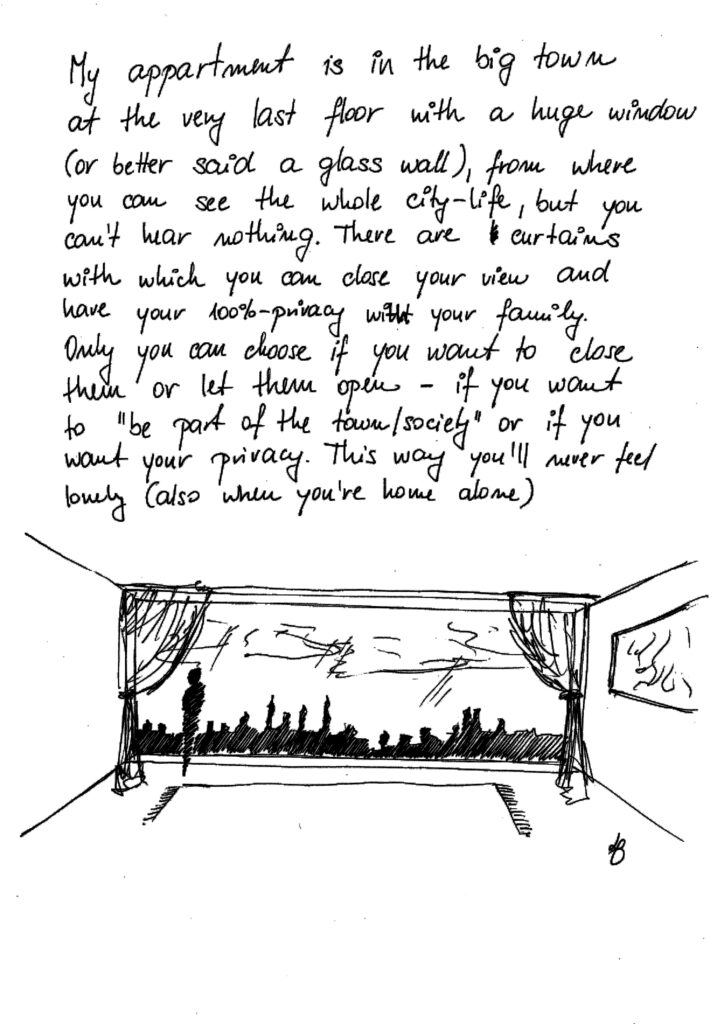 My appartment is in the big town
at the very last floor with a huge window
(or better said a glass wall), from where
you can see the whole city-life, but you
can't hear nothing. There are curtains
with which you can close your view and
have your 100%-privacy with your family.
Only you can choose if you want to close
them or let them open – if you want
to "be part of the town/society" or if you
want your privacy. This way you'll never feel
lonely (also when you're home alone)